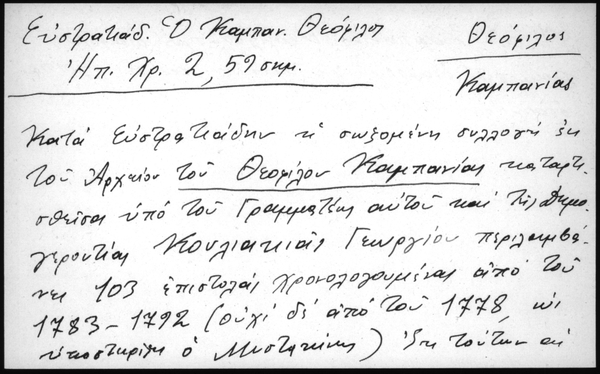 Εὐστρατιάδ. Ὁ Καμπαν. Θεόφιλος
Ἠπ. Χρ. 2, 59 σημ.
Θεόφιλος
Καμπανίας
Κατά Εὐστρατιάδην ἡ σωζομένη συλλογή ἐκ
τοῦ Ἀρχείου τοῦ Θεοφίλου Καμπανίας καταρτι-
σθεῖσα ὑπό τοῦ Γραμματέως αὐτοῦ καί τῆς Δημο-
γεροντίας Κουλιακιᾶς Γεωργίου περιλαμβά-
νει 103 ἐπιστολάς χρονολογουμένας ἀπό τοῦ
1783 - 1792 (οὐχί δέ ἀπό τοῦ 1778, ὡς
ὑποστηρίζει ὁ Μυστακίδης) Ἐκ τούτων αἱ